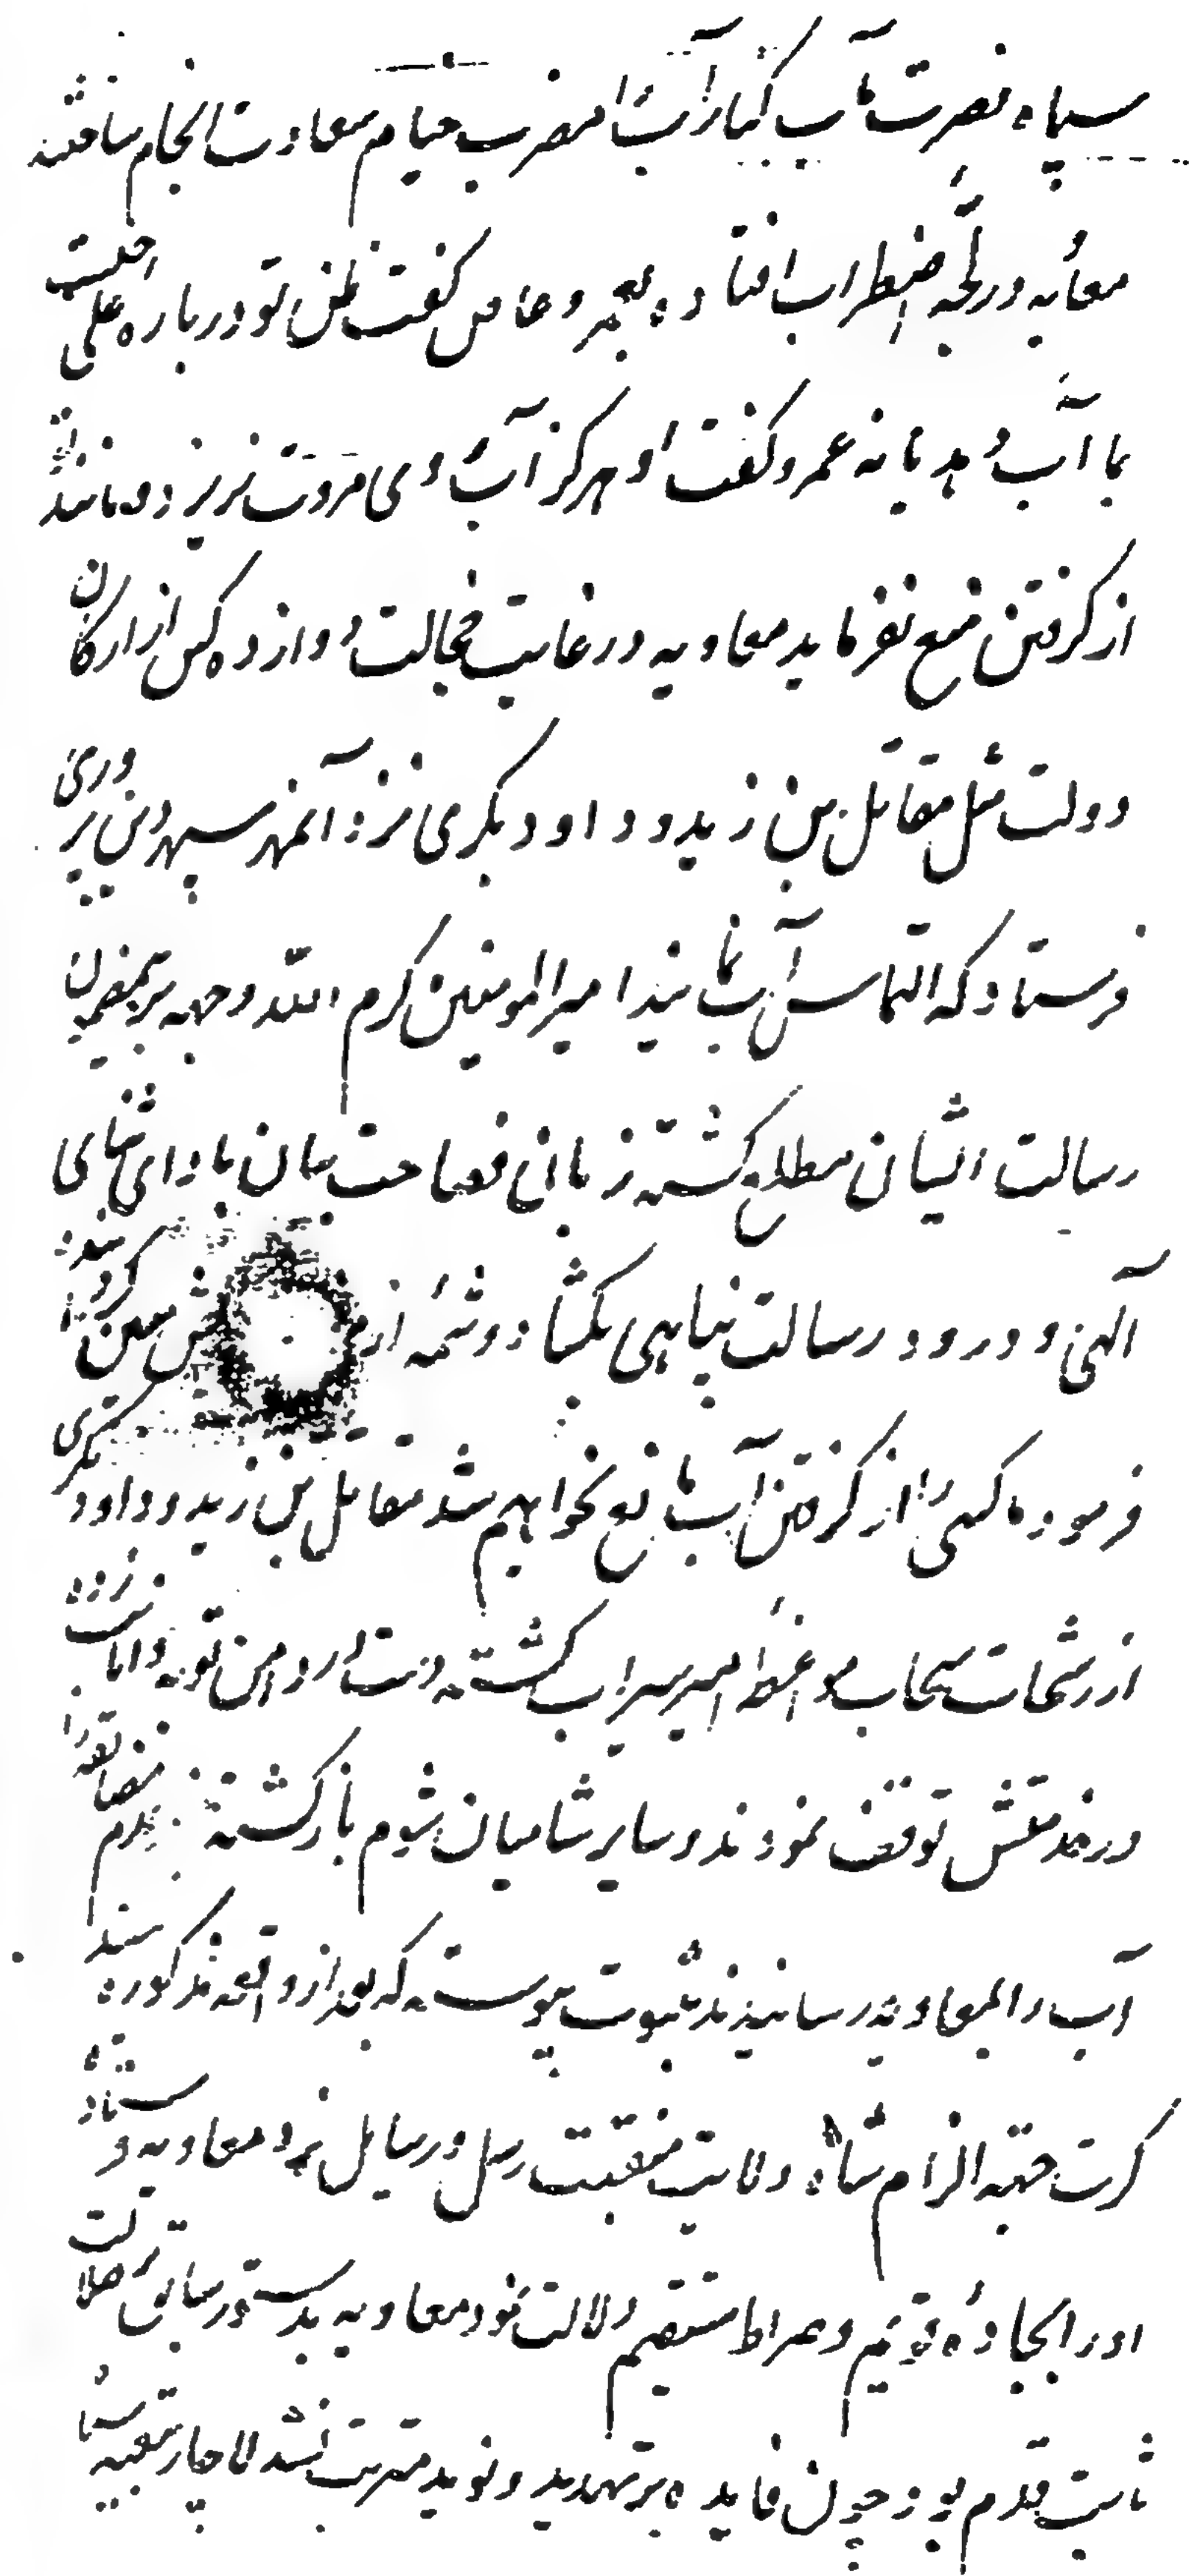 سپاه نصرت مآب کنار آب را مضرب خیام سعادت انجام ساختند
معاویه در لجه اضطراب افتاده بعمرو عاص گفت ظن تو درباره علی چیست
بما آب دهد یا نه عمرو گفت او هرگز آب روی مروت نریزد و مانند تو
از گرفتن منع نفرماید معاویه در غایت خجالت دوازده کس از ارکان
دولت مثل مقاتل بن زید و داود بکری نزد آنمهر سپهر دین پروری
فرستاد که التماس آب نمایند امیر المومنین کرم الله وجهه بر مضمون
رسالت ایشان مطلع گشته زبانی فصاحت بیان باداى ثنای
الهی و درود رسالت پناهی بگشاد و شمه از
فرمود ما کسی را از گرفتن آب مانع نخواهیم شد مقاتل بن زید و داود بکری
از رشحات سحاب مواعظ امیر سیراب گشته دست در دامن توبه و انابت زده
در خدمتش توقف نمودند و سایر شامیان شوم بازگشته عدم مضایقه
آب را بمعاویه رسانیدند بثبوت پیوسته که بعد از واقعه مذکوره
کرت جهته الزام شاه ولایت منقبت رسل و رسایل نزد معاویه فرستاد
اورا بجاده قویم و صراط مستقیم دلالت نمود معاویه بدستور سابق بر ضلالت
ثابت قدم بود چون فایده بر تهدید و نوید مترتب نشد لاجار بتعبیه